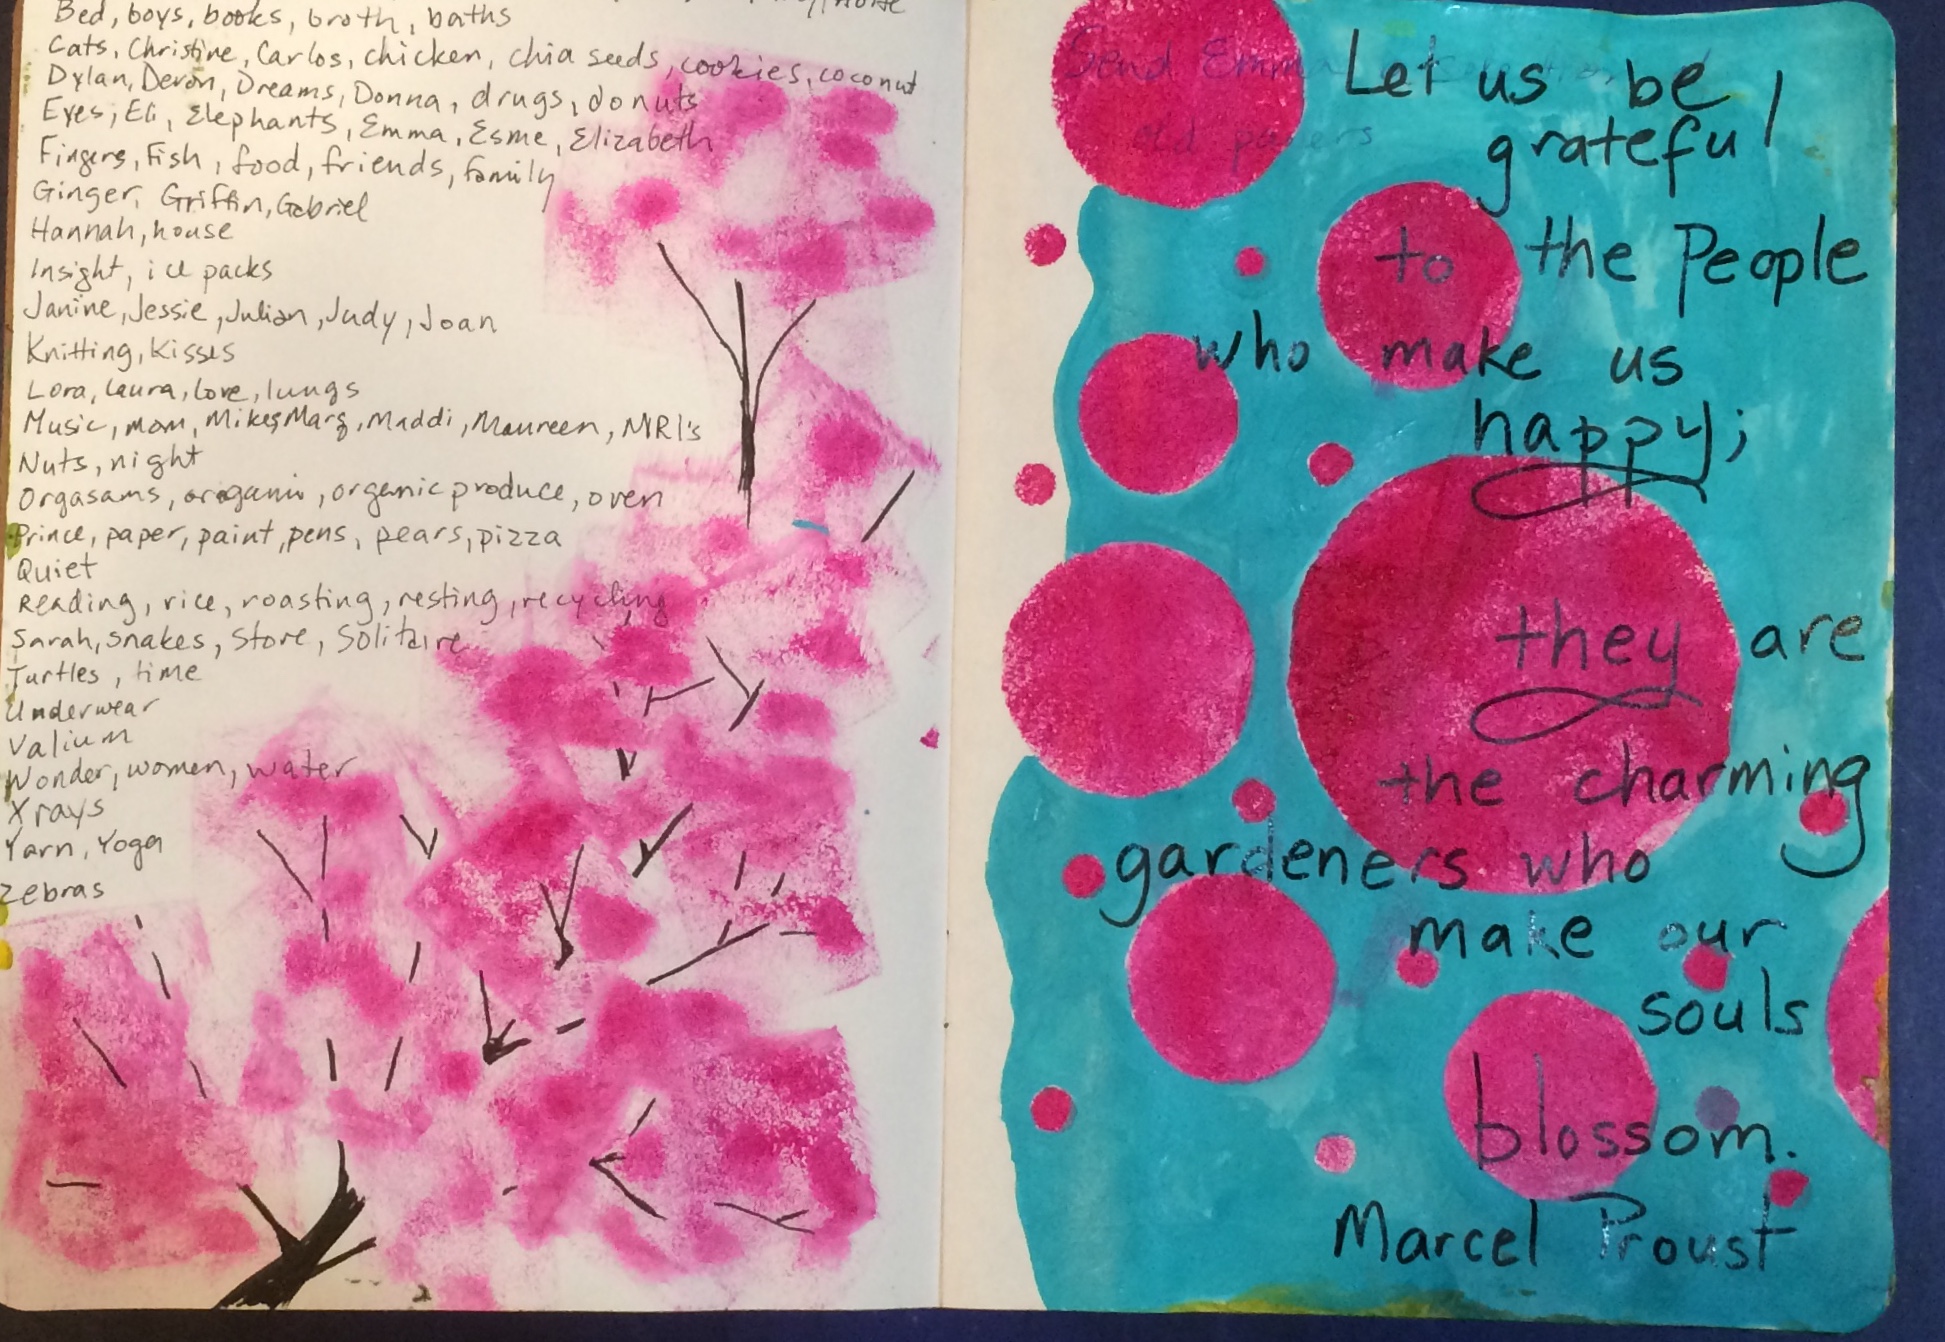 Bed, boys, books, broth, baths
Cats, Christine, Carlos, chicken, chia seeds, cookies, coconut
Dylan, Devon, Dreams, Donna, drugs, donuts
Eyes, Eli, Elephants, Emma, Esme, Elizabeth
Fingers, Fish, food, friends, family
Ginger, Griffin, Gabriel
Hannah, house
Insight, ice packs
Janine, Jessie, Julian, Judy, Joan
Knitting, kisses
Lora, Laura, love, lungs
Music, mom, Mikes, Marg, Maddi, Maureen, MRI's
Nuts, night
Orgasams, origami, organic produce, oven
Prince, paper, paint, pens, pears, pizza
Quiet
Reading, rice, roasting, resting, recycling
Sarah, snakes, Store, Solitaire
Turtles, time
Underwear
Valium
Wonder, women, water
Xrays
Yarn, Yoga
Zebras
Send Emma
old papers
Let us be
grateful
to the People
who make us
happy;
they are
the charming
gardeners who
make our
souls
blossom.
Marcel Proust